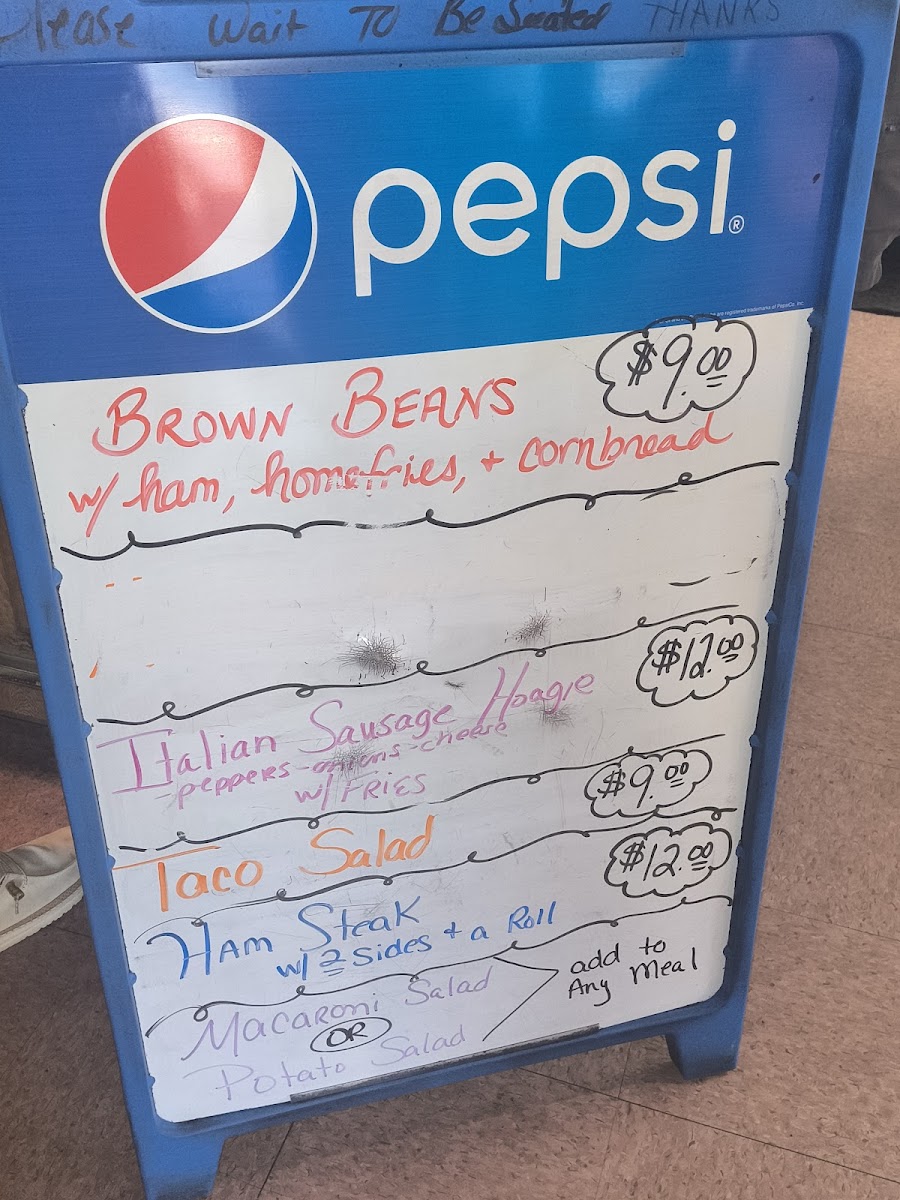 Please Wait To Be Seated THANKS
pepsi®
$9.00
BROWN BEANS
w/ ham, homefries, + cornbread
$12.00
Italian Sausage Hoagie
peppers-onions-cheese
w/ FRIES
$9.00
Taco Salad
$12.00
HAM Steak
w/ 2 Sides + a Roll
Macaroni Salad
OR
Potato Salad
add to
Any Meal